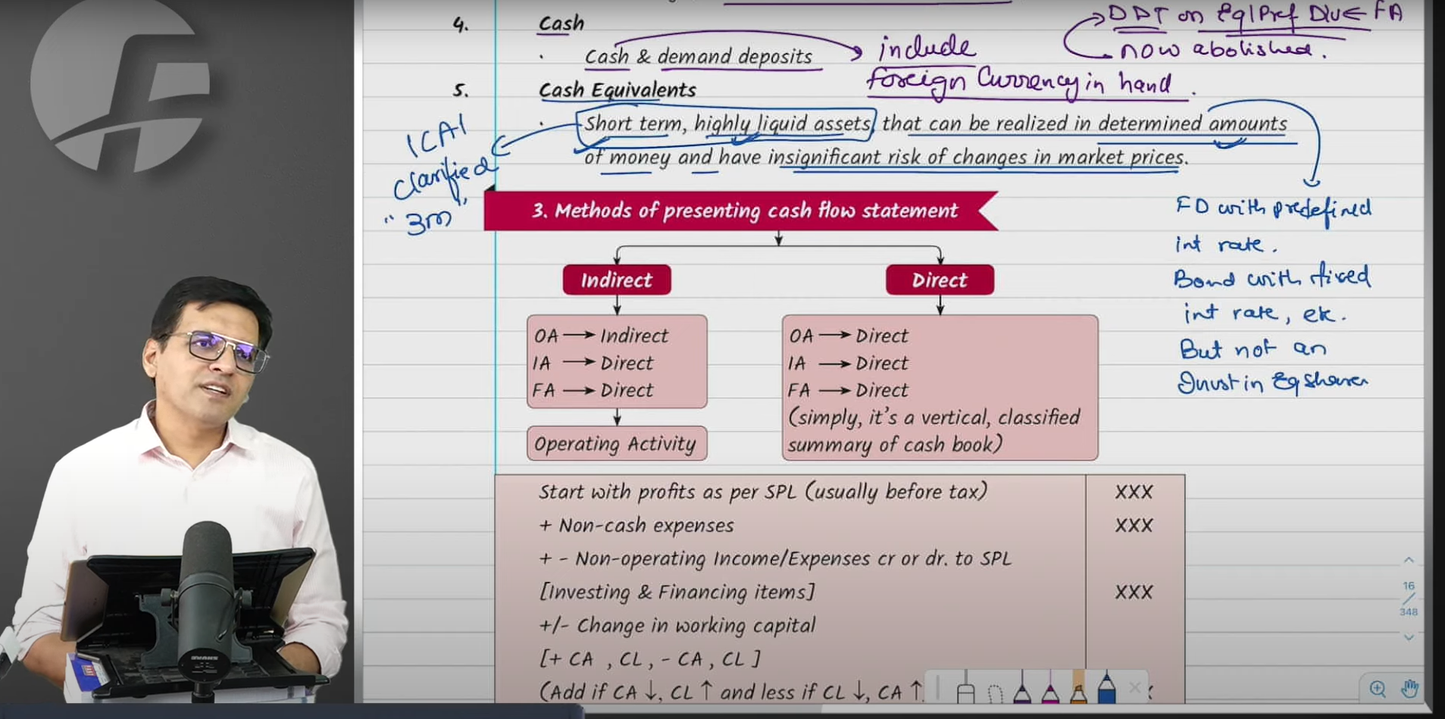 4. Cash
DDT on Eq/Pref Div ∈ FA
now abolished.
· Cash & demand deposits
include
foreign Currency in hand.
5. Cash Equivalents
· Short term, highly liquid assets, that can be realized in determined amounts
of money and have insignificant risk of changes in market prices.
ICAI
clarified
"3m"
3. Methods of presenting cash flow statement
FD with predefined
int rate.
Bond with fixed
int rate, etc.
But not an
Invst in Eq Shares
Indirect
Direct
OA → Indirect
IA → Direct
FA → Direct
Operating Activity
OA → Direct
IA → Direct
FA → Direct
(simply, it's a vertical, classified
summary of cash book)
Start with profits as per SPL (usually before tax) XXX
+ Non-cash expenses XXX
+ - Non-operating Income/Expenses cr or dr. to SPL
[Investing & Financing items] XXX
+/- Change in working capital
[+ CA , CL , - CA , CL ]
(Add if CA ↓, CL ↑ and less if CL ↓, CA ↑
16
/
348